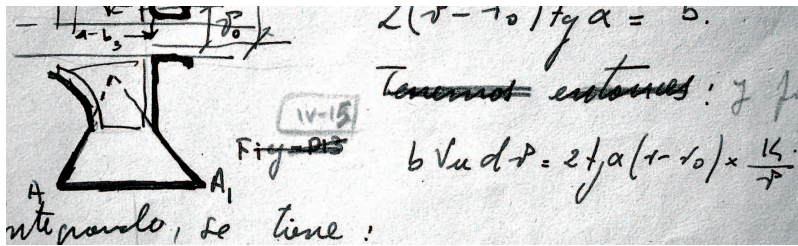 a-b₃
2(r-r₀) tg α = b.
Tenemos entonces: y
IV-15
Fig-P13
b Vu dr = 2 tg α (r-r₀) × K/r
A A₁
integrando, se tiene: